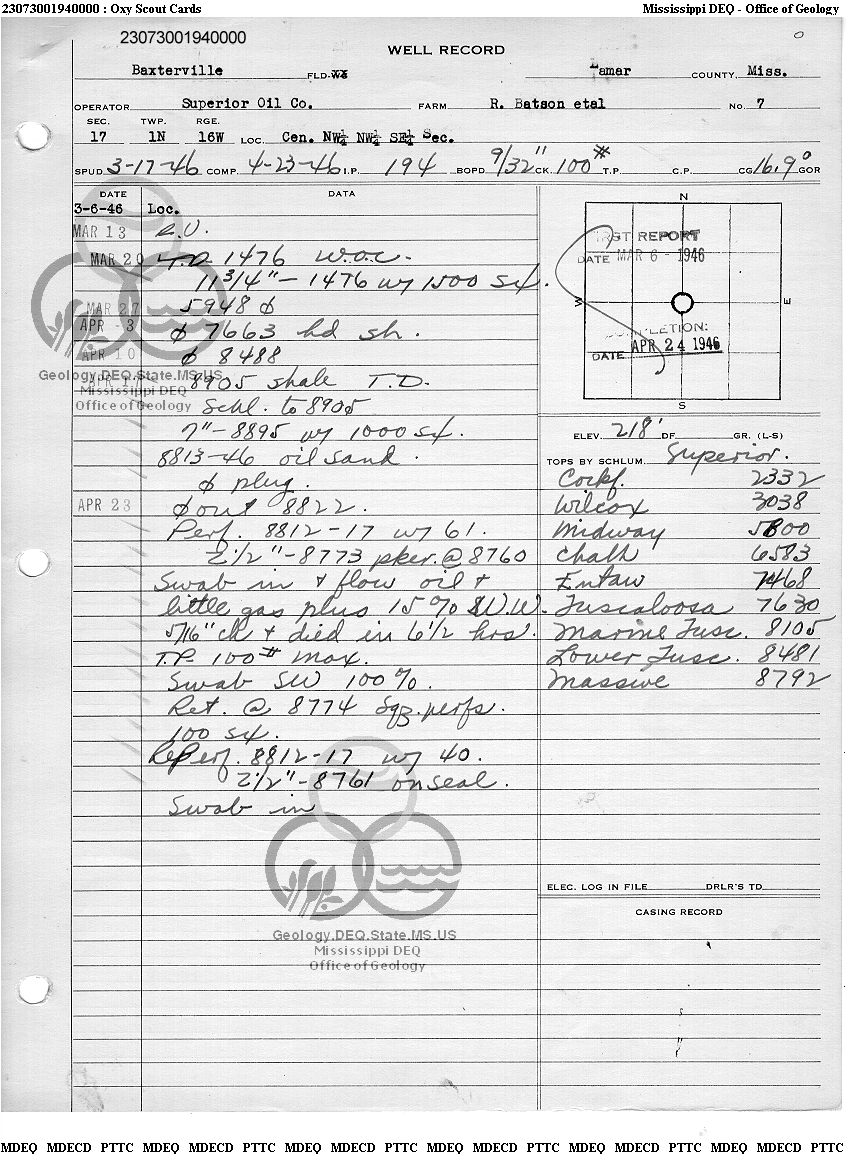 23073001940000 : Oxy Scout Cards
Mississippi DEQ - Office of Geology
23073001940000
WELL RECORD
Baxterville FLD. Lamar COUNTY, Miss.
OPERATOR Superior Oil Co. FARM R. Batson etal No. 7
SEC. TWP. RGE.
17 1N 16W LOC. Cen. NW¼ NW¼ SE¼ Sec.
SPUD 3-17-46 COMP. 4-23-46 I.P. 194 BOPD 9/32" CK. 100# T.P. C.P. CG 16.9° GOR
DATE DATA
3-6-46 Loc.
MAR 13 R.U.
MAR 20 T.D. 1476 W.O.C.
11 3/4" - 1476 w/ 1500 sx.
MAR 27 5948 ϕ
APR -3 ϕ 7663 hd sh.
APR 10 ϕ 8488
APR 17 8905 shale T.D.
Schl. to 8905
7" - 8895 w/ 1000 sx.
8813-46 oil sand.
ϕ plug.
APR 23 ϕ out 8822.
Perf. 8812-17 w/ 61.
2 1/2" - 8773 pker. @ 8760
Swab in & flow oil &
little gas plus 15% S.W.W.
5/16" ch & died in 6 1/2 hrs.
T.P. 100# max.
Swab SW 100%.
Ret. @ 8774 Sqz. perfs.
100 sx.
Reperf. 8812-17 w/ 40.
2 1/2" - 8761 on seal.
Swab in
N
W
E
S
FIRST REPORT
DATE MAR 6 - 1946
COMPLETION:
DATE APR 24 1946
ELEV. 218' DF GR. (L-S)
TOPS BY SCHLUM. Superior.
Cockf. 2332
Wilcox 3038
Midway 5800
Chalk 6583
Eutaw 7468
Tuscaloosa 7630
Marine Tusc. 8105
Lower Tusc. 8481
Massive 8792
ELEC. LOG IN FILE DRLR'S TD
CASING RECORD
Geology.DEQ.State.MS.US
Mississippi DEQ
Office of Geology
Geology.DEQ.State.MS.US
Mississippi DEQ
Office of Geology
MDEQ MDECD PTTC MDEQ MDECD PTTC MDEQ MDECD PTTC MDEQ MDECD PTTC MDEQ MDECD PTTC MDEQ MDECD PTTC